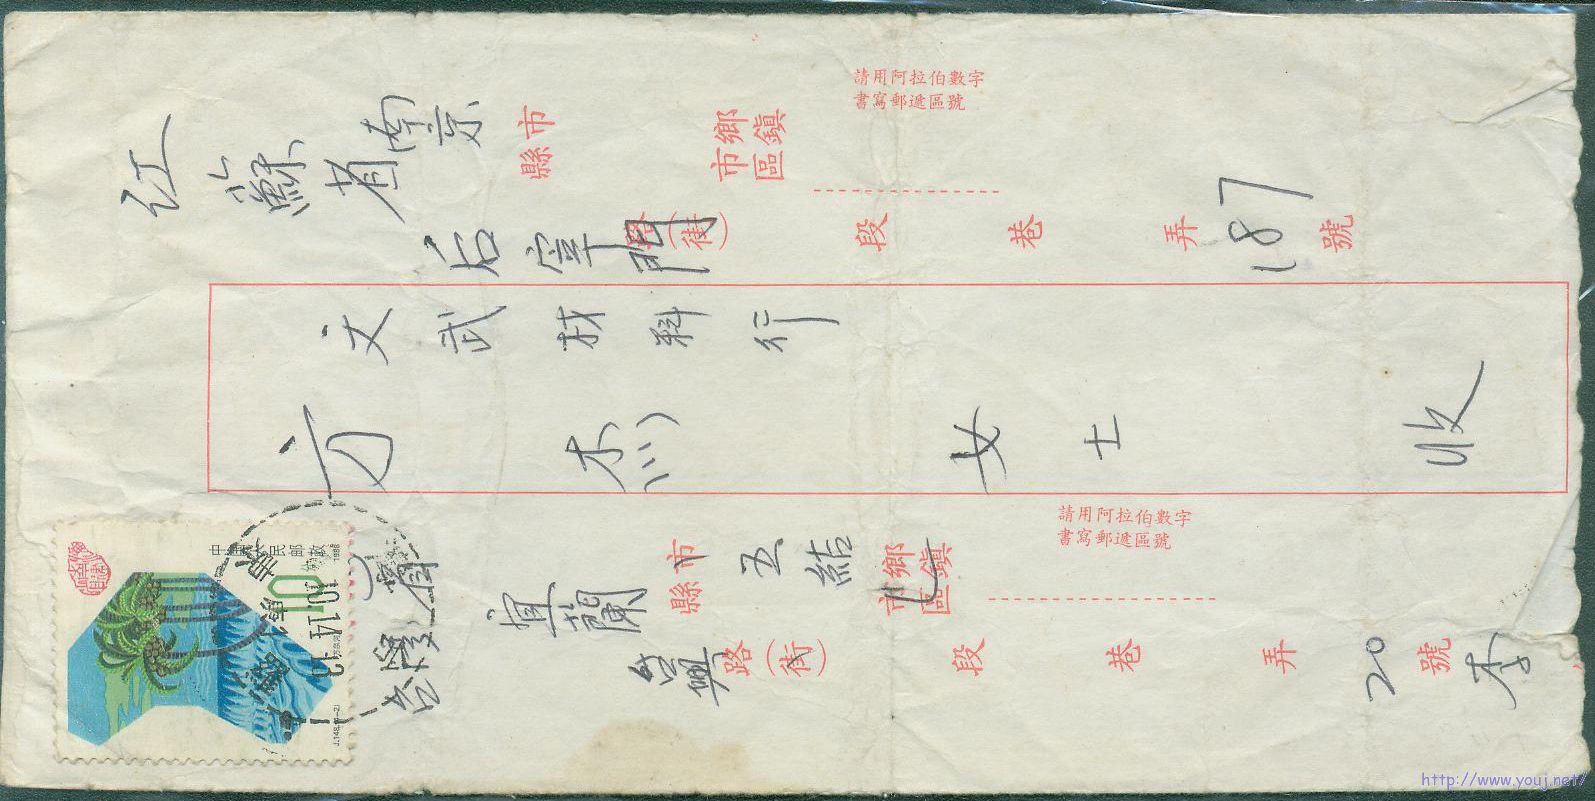 請用阿拉伯數字
書寫郵遞區號
江蘇省南京
縣市
市鄉
區鎮
后宰門
路(街)
段
巷
弄
187
號
文武材料行
方杰
女士
收
請用阿拉伯數字
書寫郵遞區號
宜蘭
縣市
五結
市鄉
區鎮
路(街)
段
巷
弄
20
號
李
中國人民郵政
10
分
1988
J.148.(4-2)
http://www.youj.net/